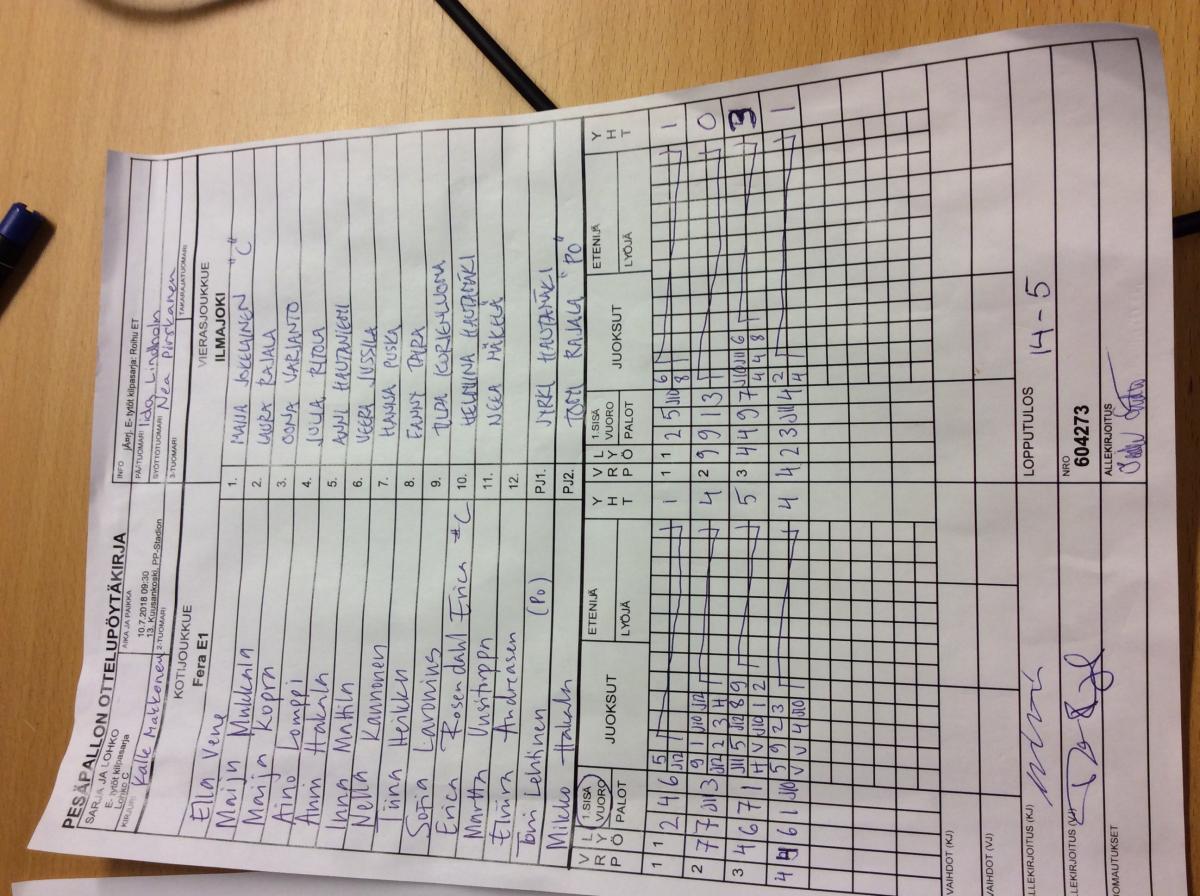 PESÄPALLON OTTELUPÖYTÄKIRJA
SARJA JA LOHKO
E- tytöt kilpasarja
Lohko C
AIKA JA PAIKKA
10.7.2018 09:30
13. Kuusankoski, PP-Stadion
INFO jÄsrj. E- tytöt kilpasarja: Roihu ET
PÄÄTUOMARI Iida Lindholm
KIRJURI Kalle Matkonen
2-TUOMARI
SYÖTTÖTUOMARI Nea Pirskanen
3-TUOMARI
TAKARAJATUOMARI
KOTIJOUKKUE
Fera E1
VIERASJOUKKUE
ILMAJOKI
Ella Vene 1. MAIJA JOKELAINEN "C"
Maiju Mukkala 2. LAURA RAJALA
Maija Kopra 3. OONA VARJANTO
Aino Lomppi 4. JOLIA RITOLA
Anni Hakala 5. ANNI HAUTANIEMI
Inna Mattila 6. VEERA JUSSILA
Nella Kannonen 7. HANNA PUSKA
Tiina Heikku 8. FANNY
Sofia Lavonius 9.
Erica Rosendahl Erica "C 10. HELMIINA HAUTAMÄKI
Martta 11. NEEA MÄKELÄ
Elviira Andreasen 12.
Toni Lehtinen (PO) PJ1. JYRKI HAUTAMÄKI
Mikko Hakala PJ2. TOMI RAJALA "PO"
V R P L Y Ö 1.SISÄ VUORO PALOT JUOKSUT ETENIJÄ LYÖJÄ Y H T V R P L Y Ö 1.SISÄ VUORO PALOT JUOKSUT ETENIJÄ LYÖJÄ Y H T
1 1 2 4 6 5 1 1 1 2 5 J10 6 1
J12 8
2 7 7 J11 3 9 1 J10 J12 4 2 9 9 1 3 0
J12 2 3 H
3 4 6 7 1 J11 5 J12 8 9 5 3 4 4 9 7 J10 J11 6 3
H V J10 1 2 4 4 8
4 4 6 1 J10 5 9 2 3 4 4 2 3 J11 4 2 1
V V 4 J10 4
VAIHDOT (KJ)
VAIHDOT (VJ)
LLEKIRJOITUS (KJ)
LOPPUTULOS 14-5
LLEKIRJOITUS (VJ)
NRO
604273
OMAUTUKSET
ALLEKIRJOITUS